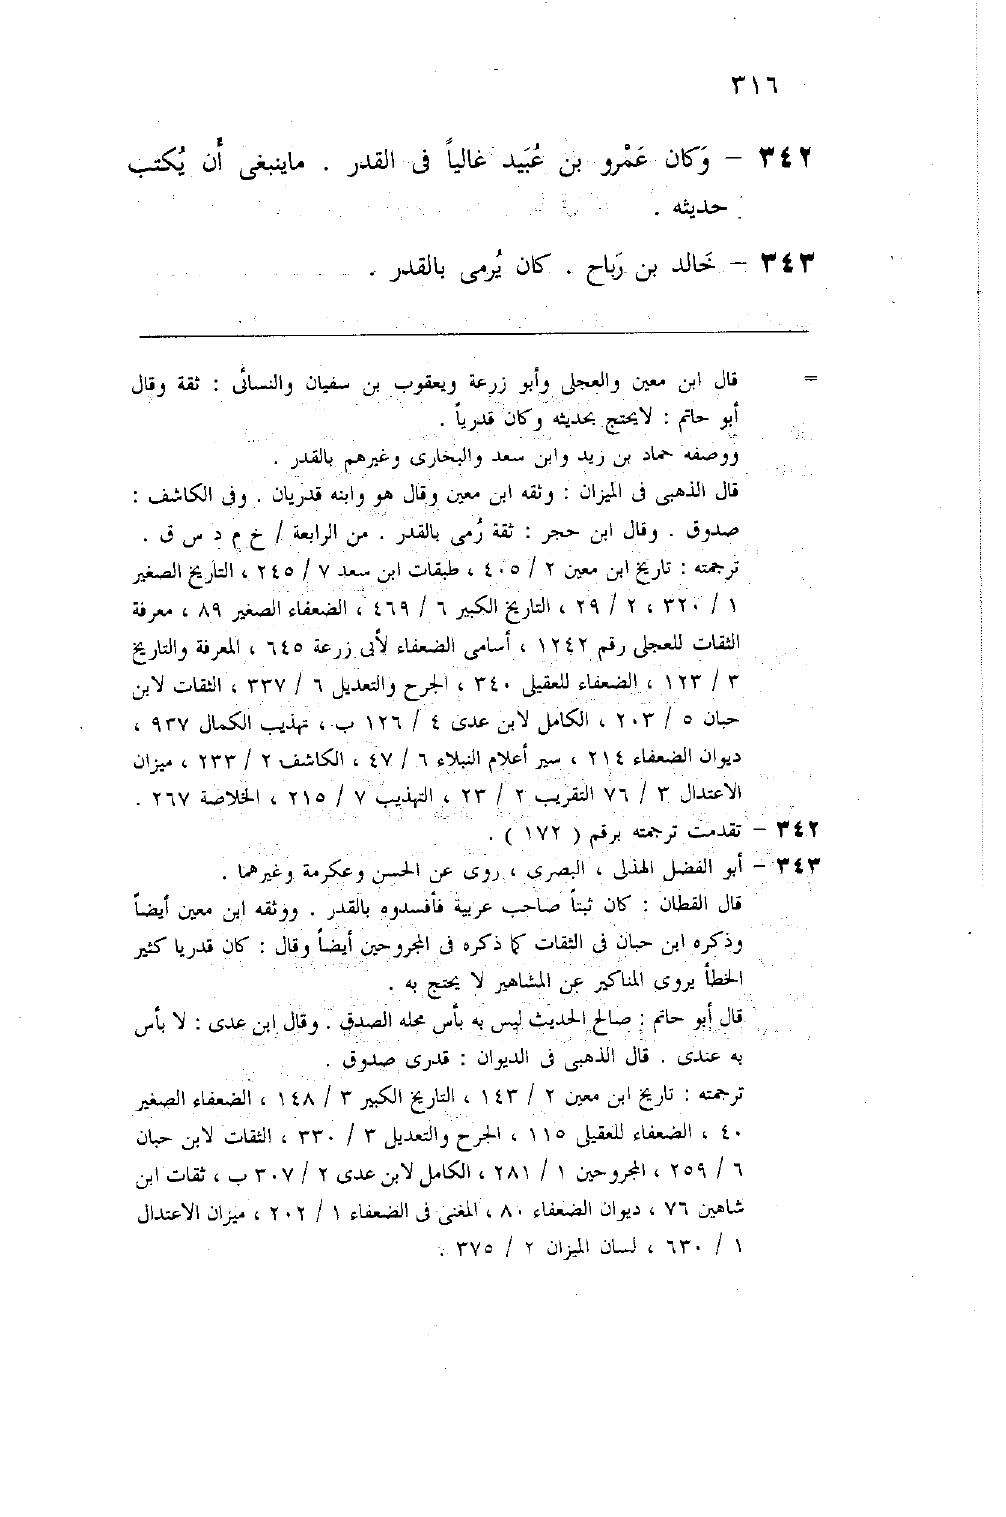 ٣١٦
٣٤٢ – وَكان عَمْرو بن عُبَيد غالياً فى القدر . ماينبغى أَن يُكتب
حديثه .
٣٤٣ – خَالد بن رَباح . كان يُرمى بالقدر .
= قال ابن معين والعجلى وأبو زرعة ويعقوب بن سفيان والنسائى : ثقة وقال
أبو حاتم : لايحتج بحديثه وكان قدرياً .
ووصفه حماد بن زيد وابن سعد والبخارى وغيرهم بالقدر .
قال الذهبى فى الميزان : وثقه ابن معين وقال هو وابنه قدريان . وفى الكاشف :
صدوق . وقال ابن حجر : ثقة رُمى بالقدر . من الرابعة / خ م د س ق .
ترجمته : تاريخ ابن معين ٢ / ٤٠٥ ، طبقات ابن سعد ٧ / ٢٤٥ ، التاريخ الصغير
١ / ٣٢٠ ، ٢ / ٢٩ ، التاريخ الكبير ٦ / ٤٦٩ ، الضعفاء الصغير ٨٩ ، معرفة
الثقات للعجلى رقم ١٢٤٢ ، أسامى الضعفاء لأبى زرعة ٦٤٥ ، المعرفة والتاريخ
٣ / ١٢٣ ، الضعفاء للعقيلى ٣٤٠ ، الجرح والتعديل ٦ / ٣٣٧ ، الثقات لابن
حبان ٥ / ٢٠٣ ، الكامل لابن عدى ٤ / ١٢٦ ب ، تهذيب الكمال ٩٣٧ ،
ديوان الضعفاء ٢١٤ ، سير أعلام النبلاء ٦ / ٤٧ ، الكاشف ٢ / ٢٣٣ ، ميزان
الاعتدال ٣ / ٧٦ التقريب ٢ / ٢٣ ، التهذيب ٧ / ٢١٥ ، الخلاصة ٢٦٧ .
٣٤٢ – تقدمت ترجمته برقم ( ١٧٢ ) .
٣٤٣ – أبو الفضل الهذلى ، البصري ، روى عن الحسن وعكرمة وغيرهما .
قال القطان : كان ثبتاً صاحب عربية فأفسدوه بالقدر . ووثقه ابن معين أيضاً
وذكره ابن حبان فى الثقات كما ذكره فى المجروحين أيضاً وقال : كان قدريا كثير
الخطأ يروى المناكير عن المشاهير لا يحتج به .
قال أبو حاتم : صالح الحديث ليس به بأس محله الصدق . وقال ابن عدى : لا بأس
به عندى . قال الذهبى فى الديوان : قدرى صدوق .
ترجمته : تاريخ ابن معين ٢ / ١٤٣ ، التاريخ الكبير ٣ / ١٤٨ ، الضعفاء الصغير
٤٠ ، الضعفاء للعقيلى ١١٥ ، الجرح والتعديل ٣ / ٣٣٠ ، الثقات لابن حبان
٦ / ٢٥٩ ، المجروحين ١ / ٢٨١ ، الكامل لابن عدى ٢ / ٣٠٧ ب ، ثقات ابن
شاهين ٧٦ ، ديوان الضعفاء ٨٠ ، المغنى فى الضعفاء ١ / ٢٠٢ ، ميزان الاعتدال
١ / ٦٣٠ ، لسان الميزان ٢ / ٣٧٥ .